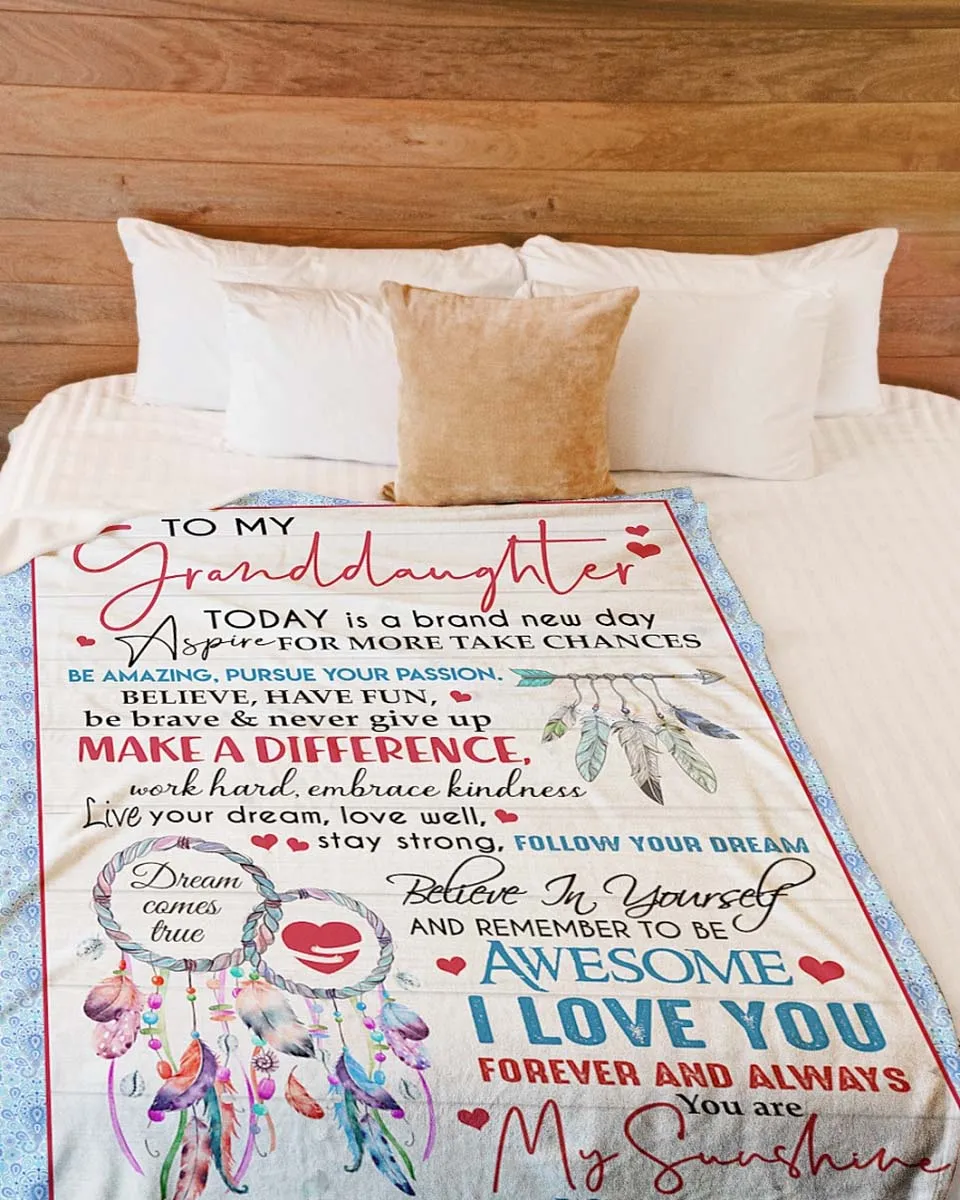 TO MY
Granddaughter
TODAY is a brand new day
Aspire FOR MORE TAKE CHANCES
BE AMAZING, PURSUE YOUR PASSION.
BELIEVE, HAVE FUN,
be brave & never give up
MAKE A DIFFERENCE,
work hard, embrace kindness
Live your dream, love well,
stay strong, FOLLOW YOUR DREAM
Dream
comes
true
Believe In Yourself
AND REMEMBER TO BE
AWESOME
I LOVE YOU
FOREVER AND ALWAYS
You are
My Sunshine